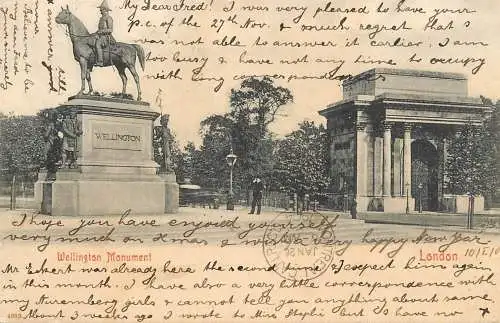 My dear Fred! I was very pleased to have your
p.c. of the 27th Nov. & much regret that I
was not able to answer it earlier. I am
too busy & have not any time to occupy
with long correspondence
WELLINGTON
I hope you have enjoyed yourself
very much on Xmas & wish a very happy New Year
Wellington Monument
London
10/I
Mr Eckert was already here the second time & I expect him again
in this month. I have also a very little correspondence with
my Nuremberg girls & cannot tell you anything about same
About 3 weeks ago I wrote to Miss but I have no
yours
sincerely